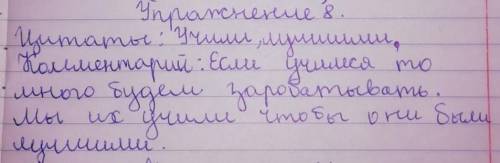 Упражнение 8.
Цитаты: Учили, лучшими.
Комментарий: Если учимся то
много будем заробатывать.
Мы их учили чтобы они были
лучшими.